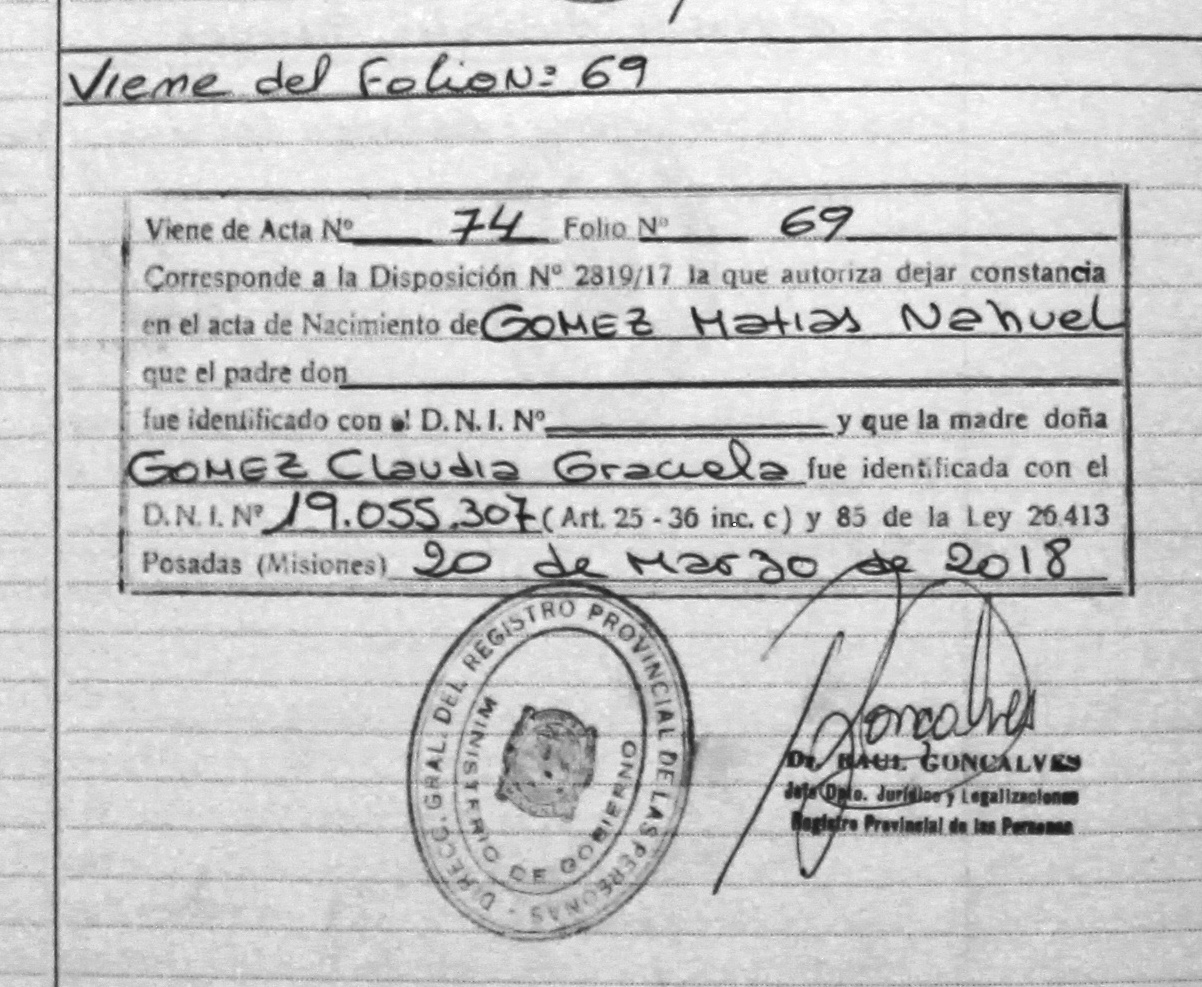 Viene del Folio Nº 69
Viene de Acta Nº 74 Folio Nº 69
Corresponde a la Disposición Nº 2819/17 la que autoriza dejar constancia
en el acta de Nacimiento de GOMEZ Matias Nahuel
que el padre don
fue identificado con el D. N. I. Nº y que la madre doña
GOMEZ Claudia Graciela fue identificada con el
D. N. I. Nº 19.055.307 (Art. 25 - 36 inc. c) y 85 de la Ley 26.413
Posadas (Misiones) 20 de Marzo de 2018
DIRECC. GRAL. DEL REGISTRO PROVINCIAL DE LAS PERSONAS -
MINISTERIO DE GOBIERNO
Goncalves
Dr. RAUL GONCALVES
Jefe Dpto. Jurídico y Legalizaciones
Registro Provincial de las Personas